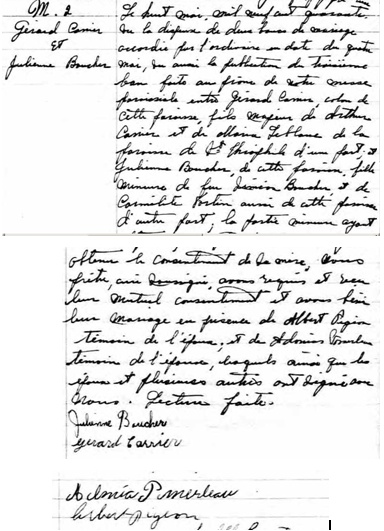 M. 2
Gérard Carrier
ET
Julienne Boucher
Le huit mai, mil neuf cent quarante
vu la dispense de deux bans de mariage
accordée par l'ordinaire en date du quatre
mai, vu aussi la publication du troisième
ban faite au prône de notre messe
paroissiale entre Gérard Carrier, colon de
cette paroisse, fils majeur de Arthur
Carrier et de Maria Leblanc de la
paroisse de St Théophile d'une part, et
Julienne Boucher, de cette paroisse, fille
mineure de feu Boucher, et de
Fortin aussi de cette paroisse
d'autre part; la partie mineure ayant
obtenu le consentement de la mère, Nous
prêtre, curé soussigné, avons requis et reçu
leur mutuel consentement et avons béni
leur mariage en présence de Albert Pigeon
témoin de l'époux, et de Adonias
témoin de l'épouse, lesquels ainsi que les
époux et plusieurs autres ont signé avec
Nous. Lecture faite.
Julienne Boucher
Gérard Carrier
Pomerleau
Albert Pigeon